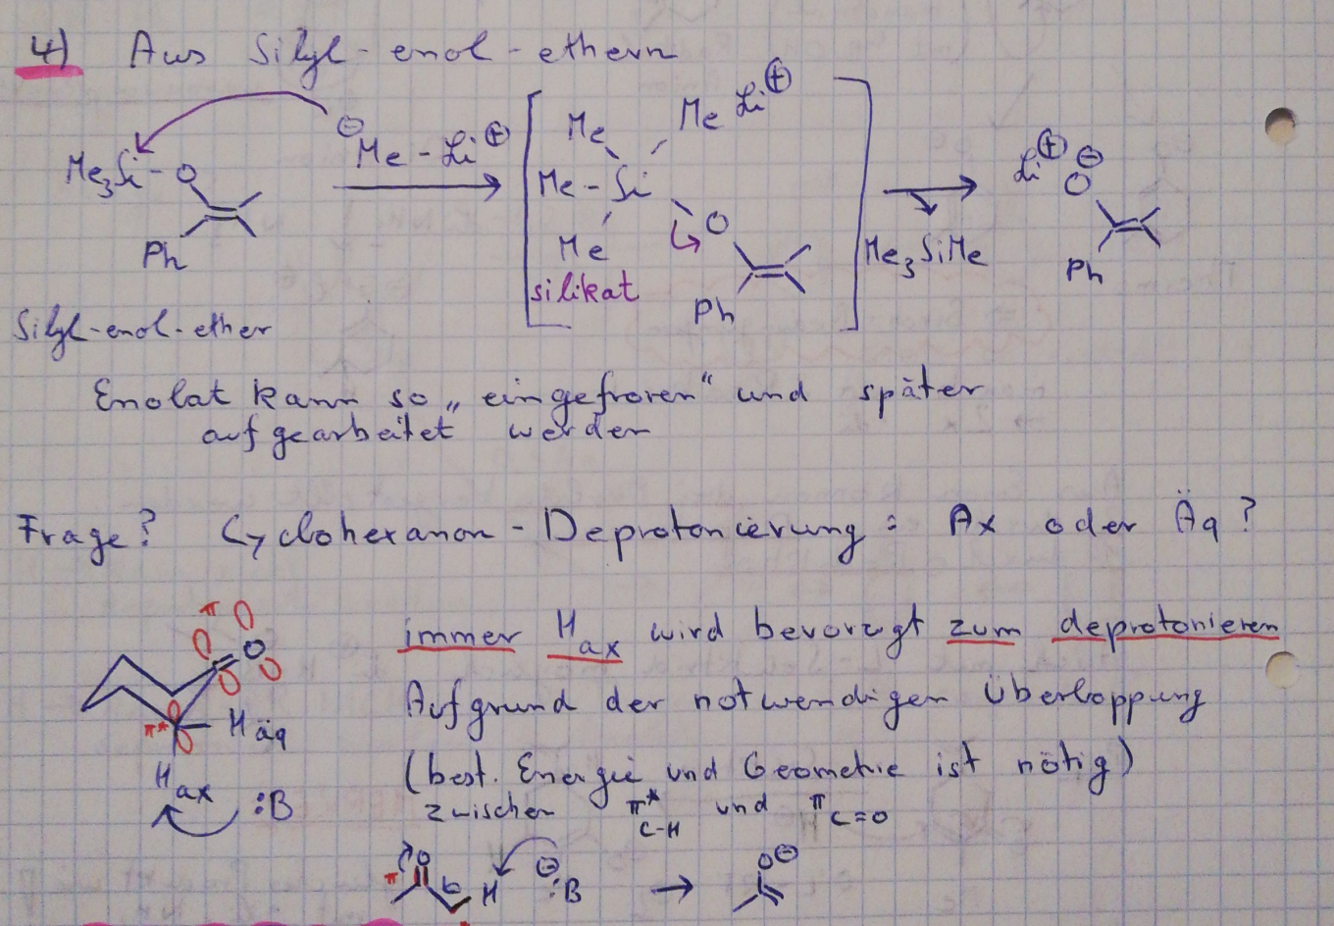 4) Aus Silyl-enol-ethern
Me Me Li⊕
⊖
Me₃Si-O Me-Li⊕ Me-Si Li⊕ ⊖
O
Me O Me₃SiMe
Ph silikat Ph Ph
Silyl-enol-ether
Enolat kann so „eingefroren“ und später
aufgearbeitet werden
Frage? Cyclohexanon-Deprotonierung: Ax oder Äq?
π
O
immer Hax wird bevorzugt zum deprotonieren
Aufgrund der notwendigen Überlappung
π* Häq
(best. Energie und Geometrie ist nötig)
Hax :B
zwischen π*C-H und πC=O
π O H ⊖:B → O⊖